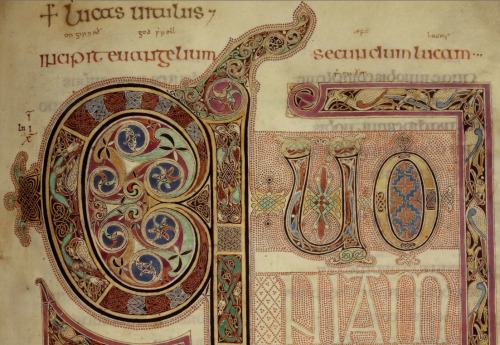 + lucas uitulus
incipit euangelium secundum lucam
QUO
NIAM